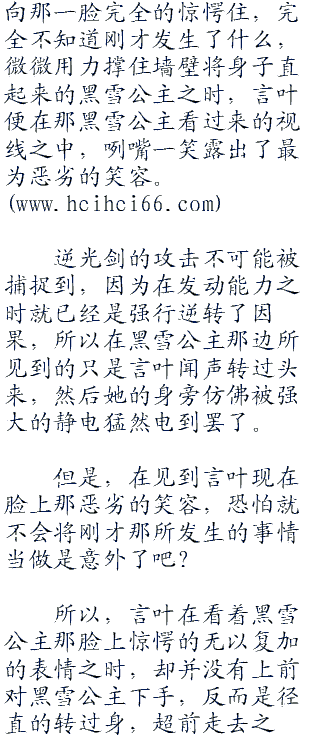 向那一脸完全的惊愕住，完
全不知道刚才发生了什么，
微微用力撑住墙壁将身子直
起来的黑雪公主之时，言叶
便在那黑雪公主看过来的视
线之中，咧嘴一笑露出了最
为恶劣的笑容。
(www.hcihci66.com)
逆光剑的攻击不可能被
捕捉到，因为在发动能力之
时就已经是强行逆转了因
果，所以在黑雪公主那边所
见到的只是言叶闻声转过头
来，然后她的身旁仿佛被强
大的静电猛然电到罢了。
但是，在见到言叶现在
脸上那恶劣的笑容，恐怕就
不会将刚才那所发生的事情
当做是意外了吧?
所以，言叶在看着黑雪
公主那脸上惊愕的无以复加
的表情之时，却并没有上前
对黑雪公主下手，反而是径
直的转过身，超前走去之